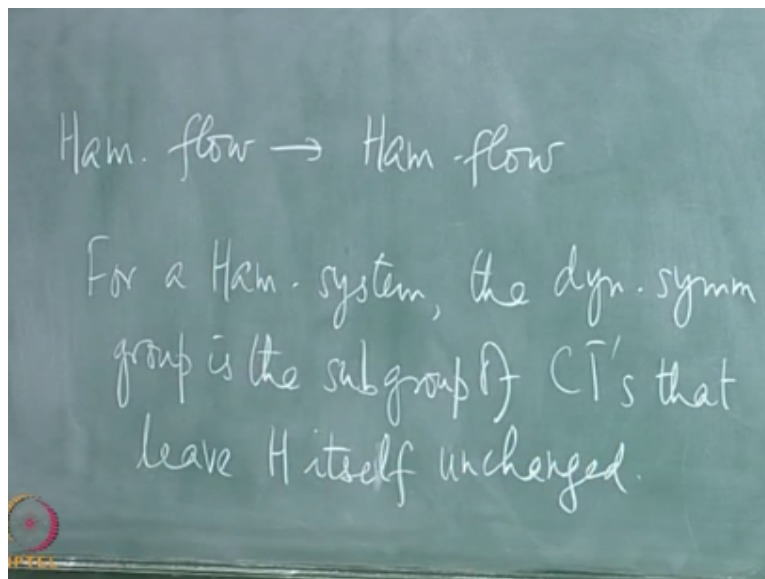 Ham. flow → Ham. flow
For a Ham. system, the dyn. symm
group is the subgroup of CT's that
leave H itself unchanged.
NPTEL